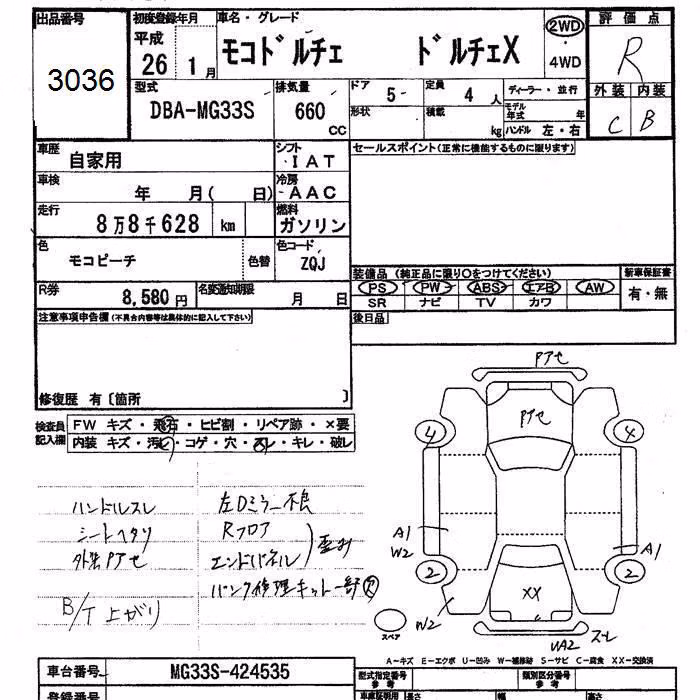 出品番号
3036
初度登録年月
平成
26 1月
車名・グレード
モコドルチェ ドルチェX
2WD
・
4WD
評価点
R
外装 内装
C B
型式
DBA-MG33S
排気量
660
cc
ドア
5
定員
4 人
形状
積載
kg
ディーラー・並行
モデル年式 年
ハンドル 左・右
車歴
自家用
シフト
IAT
セールスポイント(正常に機能するものに限ります)
車検
年 月( 日)
冷房
AAC
走行
8万8千628 km
燃料
ガソリン
色
モコピーチ
色替
色コード
ZQJ
R券
8,580円
名変通知期限
月 日
装備品(純正品に限り○をつけてください)
新車保証書
PS PW ABS エアB AW
有・無
SR ナビ TV カワ
注意事項申告欄(不具合内容等は具体的に記入して下さい)
後日品
修復歴 有〔箇所 〕
検査員記入欄
FW キズ・飛石・ヒビ割・リペア跡・×要
内装 キズ・汚レ・コゲ・穴・スレ・キレ・破レ
ハンドルスレ
シートヘタリ
外装Pアセ
B/T上がり
左Dミラー不良
Rフロア
エンドパネル
歪み
パンク修理キット一部欠
Pアセ
Pアセ
4 4
A1
W2
A1
2 2
XX
W2
WA2
スレ
スペア
A-キズ E-エクボ U-凹み W-補修跡 S-サビ C-腐食 XX-交換済
車台番号
MG33S-424535
型式指定番号
参考
類別区分番号
参考
登録番号
車庫証明用
参考
長さ
幅
高さ